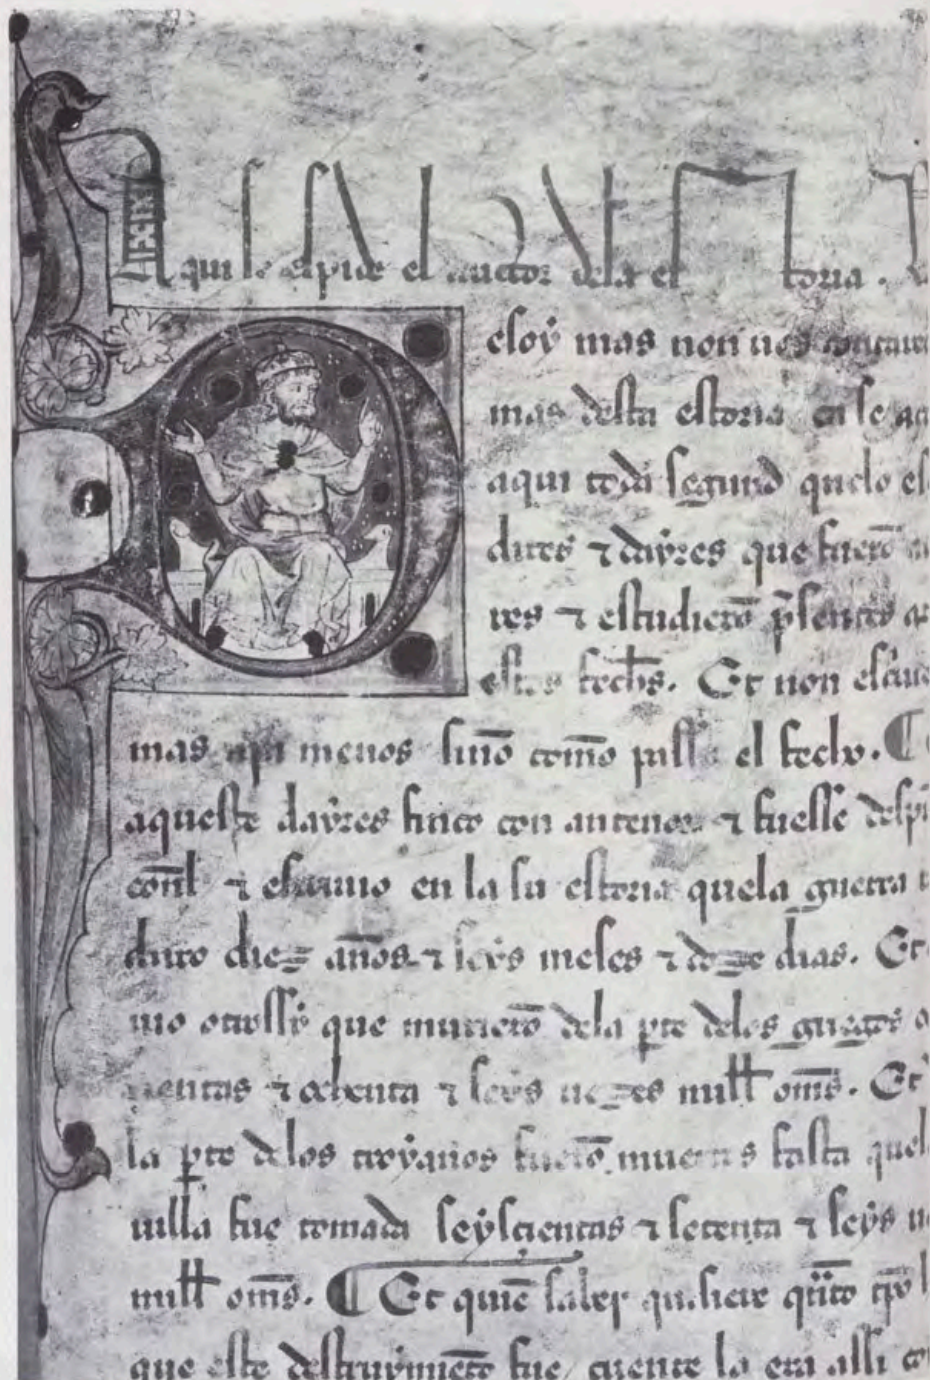 Aqui se espide el auctor dela es toria.
esoy mas non uos
mas desta estoria en se
aqui toda segund quelo es
ditis ⁊ dayres que fuerō
res ⁊ estudierō p̄sentes
estos fechos. Et non
mas nin menos sinō comō passa el fecho. ¶
aqueste dayres finco con antenor ⁊ fuesse despu
cōnl ⁊ en la su estoria quela guerra
duro diez años ⁊ seys meses ⁊ doze dias. Et
uio otrossy que murierō dela pte delos griegos
⁊ ochenta ⁊ seys uezes mill om̄s. Et
la pte delos troyanos fuerō muertos fasta quel
uilla fue tomada seysçientas ⁊ setenta ⁊ seys
mill om̄s. ¶ Et quiē saber quisiere
que este destruymiētō fue cuente la era assi